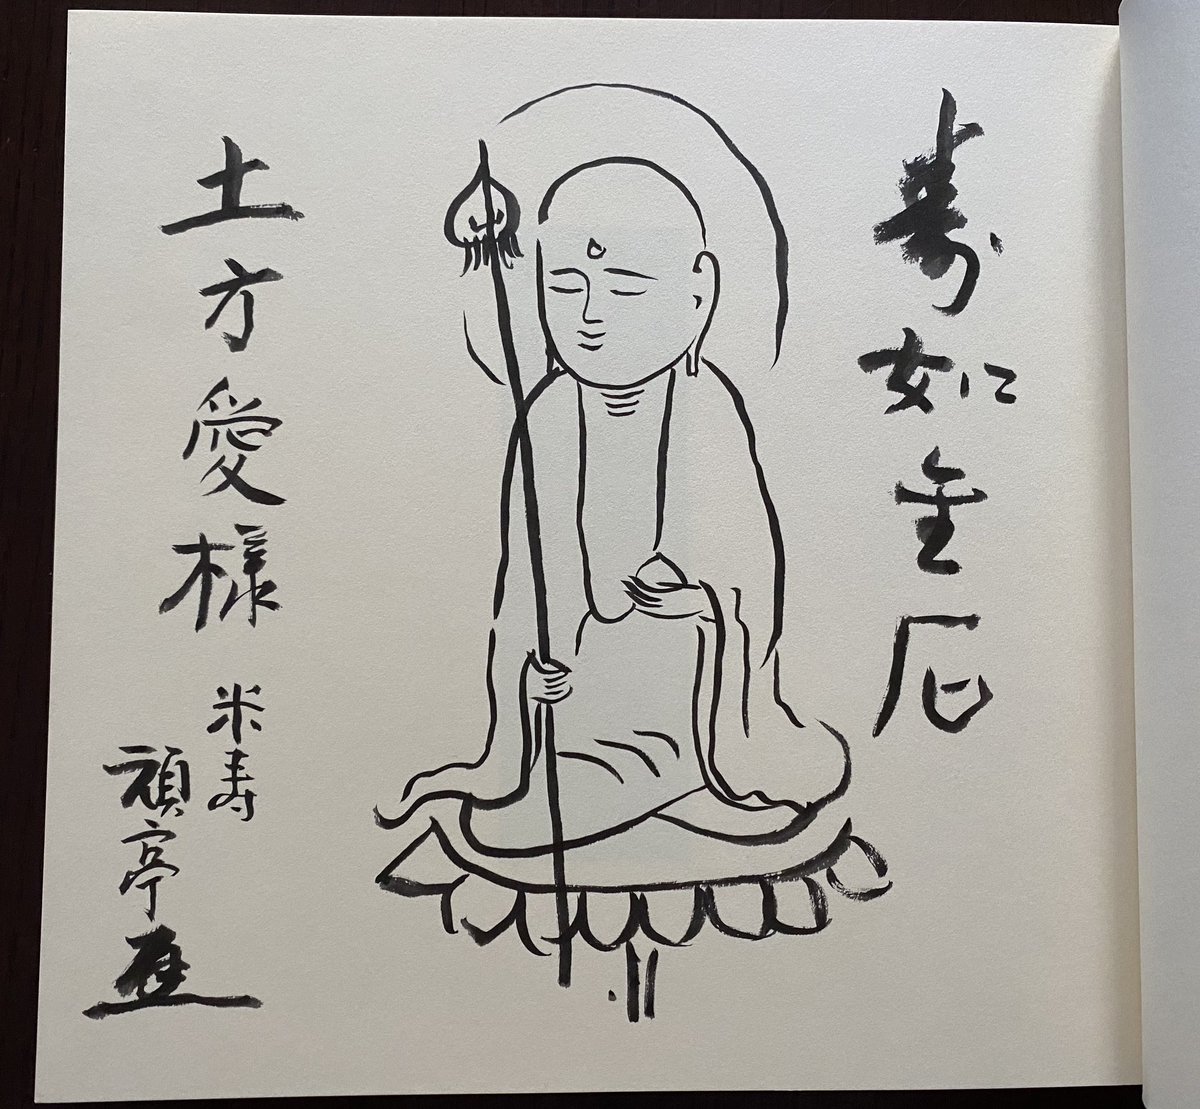 寿如金石
土方愛様
米寿
頑亭